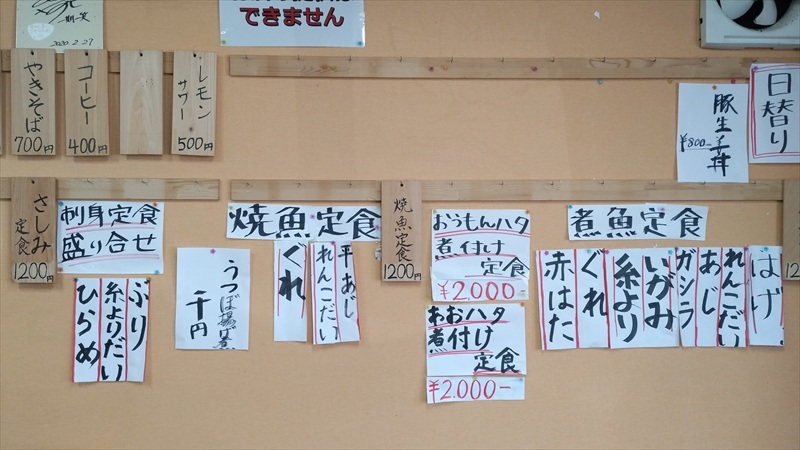 2020.2.27
できません
やきそば
700円
コーヒー
400円
レモン
サワー
500円
豚生姜丼
¥800-
日替り
さしみ
定食
1200円
刺身定食
盛り合せ
ぶり
糸よりだい
ひらめ
うつぼ揚げ煮
千円
焼魚定食
ぐれ
平あじ
れんこだい
焼魚定食
1200円
おうもんハタ
煮付け
定食
¥2.000-
あおハタ
煮付け
定食
¥2.000-
煮魚定食
はげ
れんこだい
あじ
ガシラ
いがみ
糸より
ぐれ
赤はた